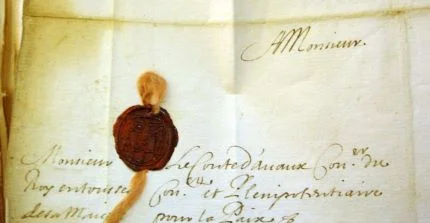 A Monsieur.
Monsieur Le Conte d'avaux Con.er du
Roy en tous ses Con.els et Plenipotentiaire
de sa Maj pour la Paix &